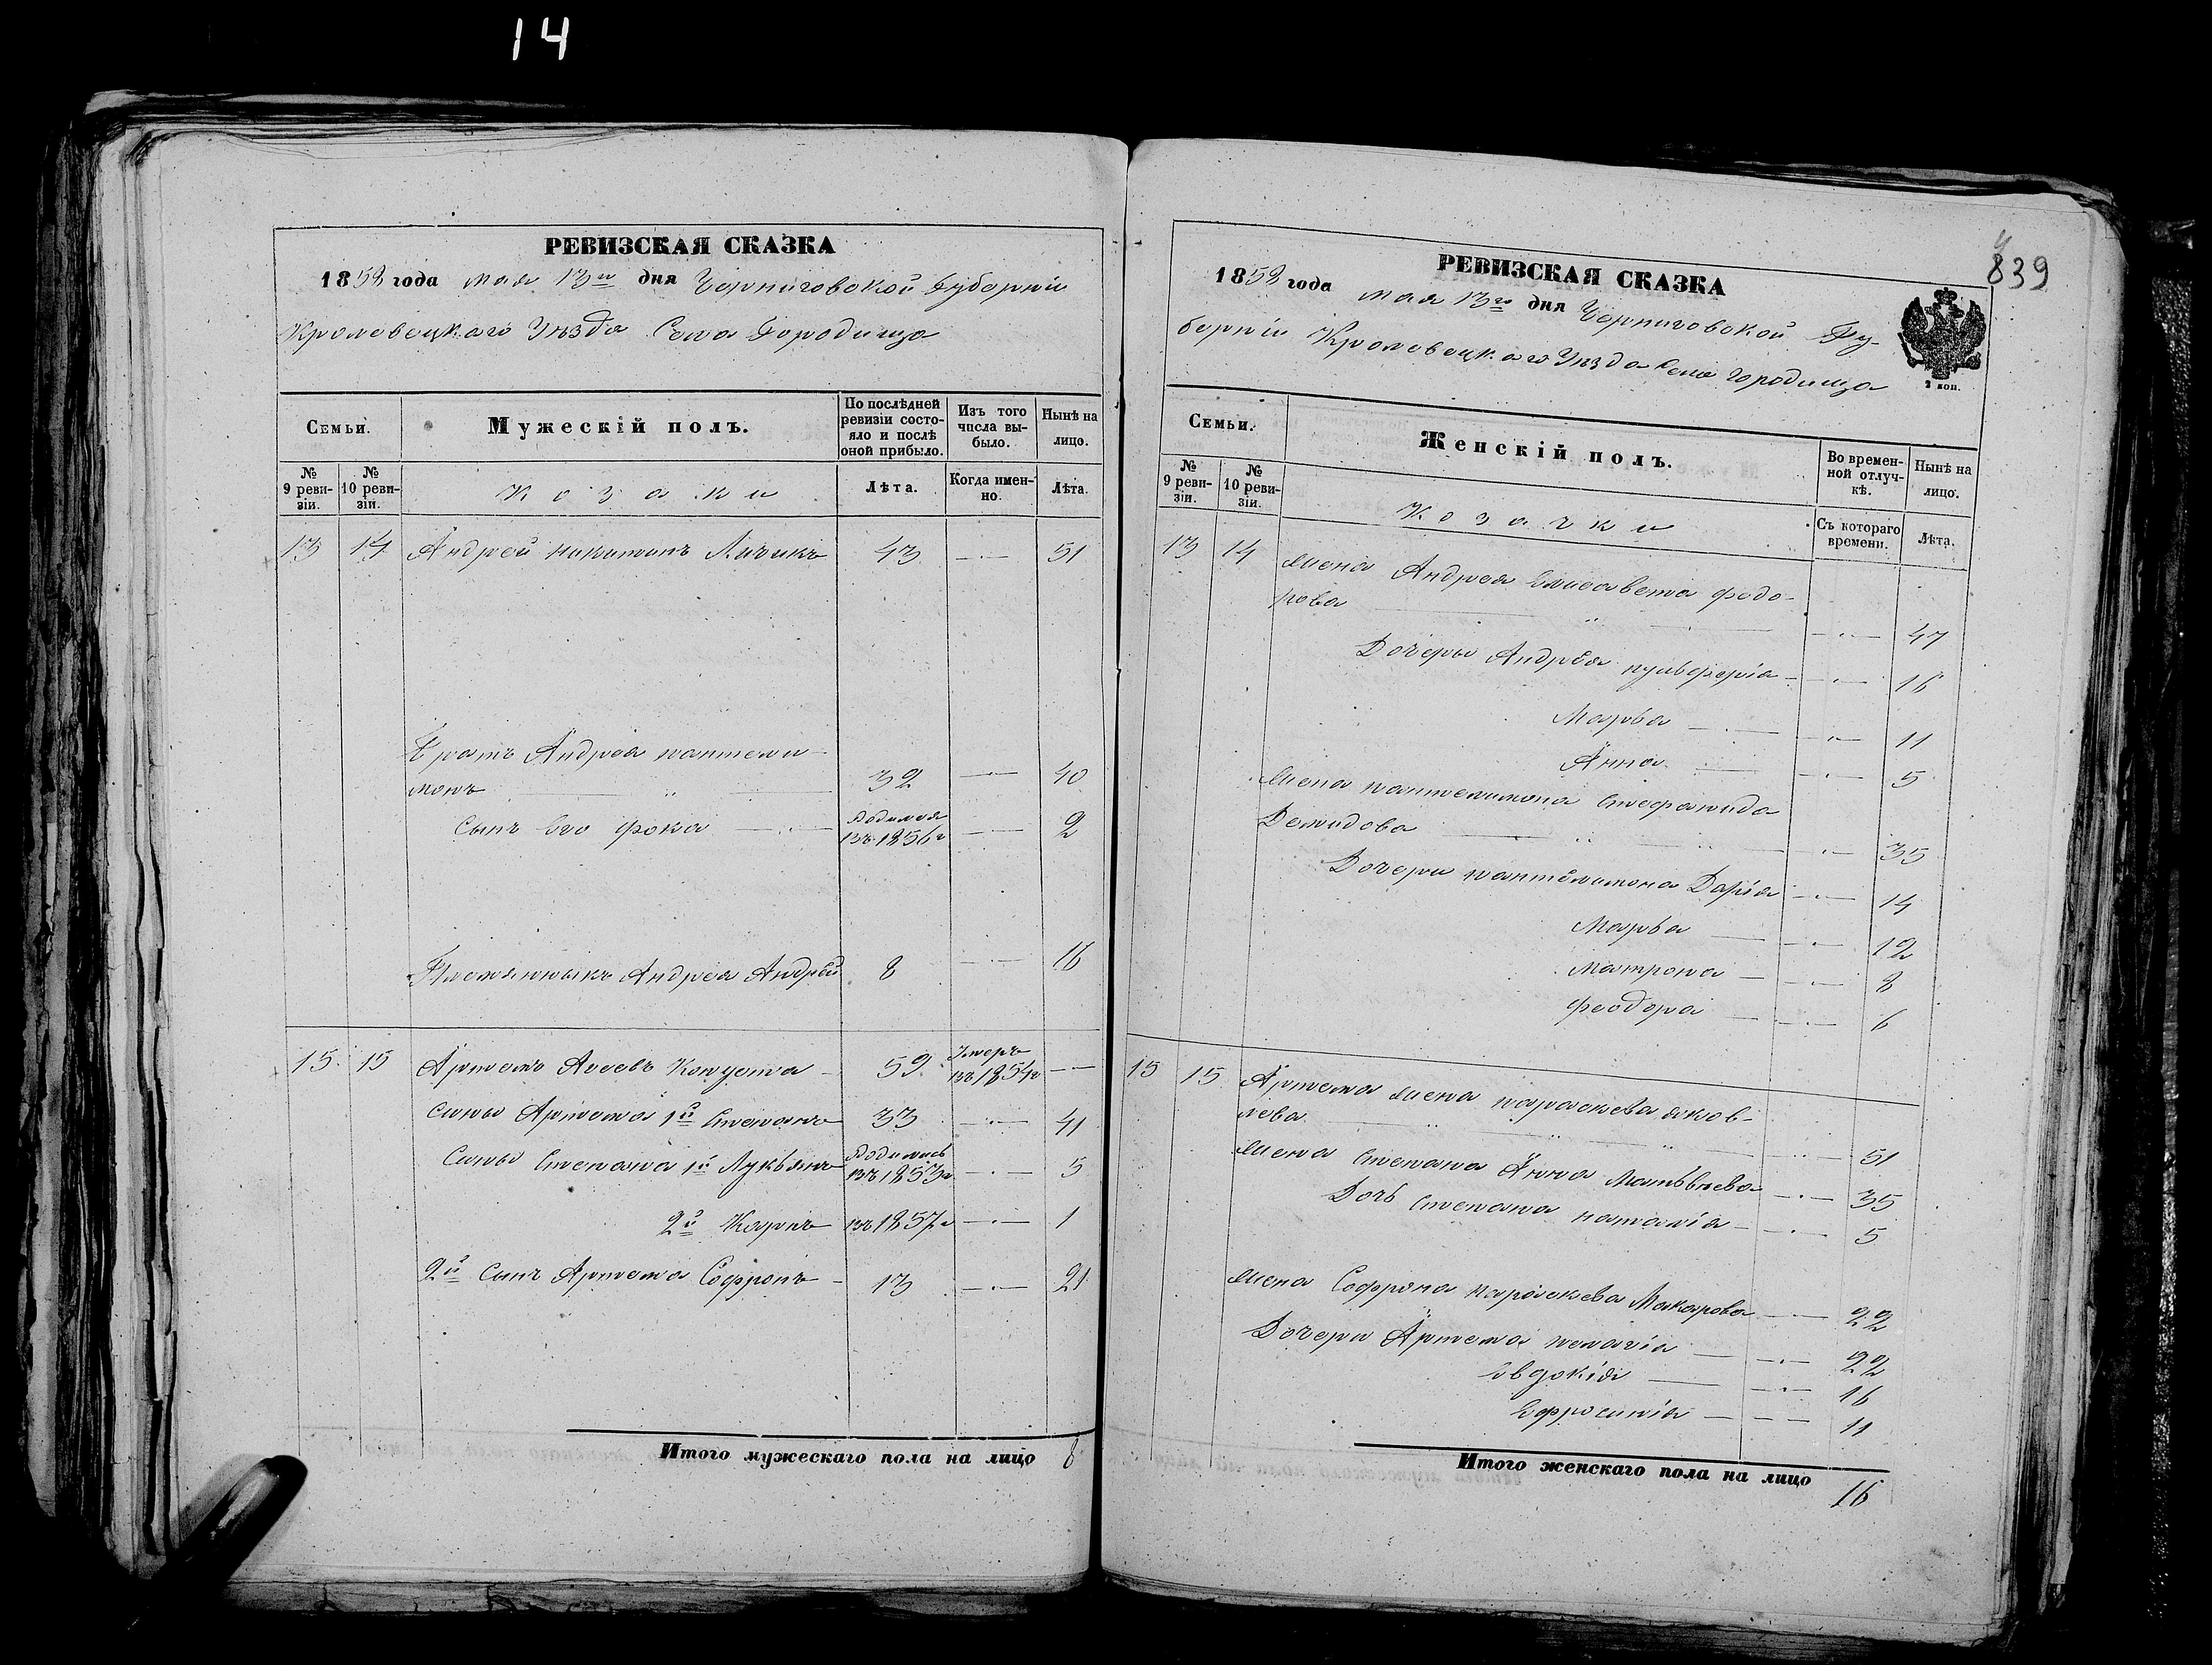 14
839
РЕВИЗСКАЯ СКАЗКА
1858 года мая 13го дня Черниговской Губерніи
Кролевецкаго Уѣзда Села Городища
Семьи.
Мужескій полъ.
По послѣдней ревизіи состояло и послѣ оной прибыло.
Изъ того числа выбыло.
Нынѣ на лицо.
№ 9 ревизіи.
№ 10 ревизіи.
Козаки
Лѣта.
Когда именно.
Лѣта.
13 14 Андрей Никитинъ 43 — 51
Братъ Андрея Пантели-
монъ 32 — 40
Сынъ Его Фока родился въ 1856г — 2
Племянныкъ Андрея Андрѣй 8 — 16
15 15 Артемъ Капуста 59 Умеръ въ 1854г —
Сыны Артема 1й Степанъ 33 — 41
Сыны Степана 1й Лукьянъ родились въ 1853г — 5
2й Карпъ въ 1857г — 1
2й Сынъ Артема Софронъ 13 — 21
Итого мужескаго пола на лицо 8
РЕВИЗСКАЯ СКАЗКА
1858 года мая 13го дня Черниговской Гу-
берніи Кролевецкаго Уѣзда Села Городища
2 коп.
Семьи.
Женскій полъ.
Во временной отлучкѣ.
Нынѣ на лицо.
№ 9 ревизіи.
№ 10 ревизіи.
Козачки
Съ котораго времени.
Лѣта.
13 14 Жена Андрея Елисавета Федо-
рова — 47
Дочеры Андрѣя Пульферія — 16
Марѳа — 11
Анна — 5
Жена Пантелимона Стефанида
Демидова — 35
Дочери Пантелимона Дарія — 14
Марѳа — 12
Матрона — 8
Феодора — 6
15 15 Артема жена Параскева Яков-
лева — 51
Жена Степана Анна Матьвѣева — 35
Дочь Степана Наталія — 5
Жена Софрона Параскева Макарова — 22
Дочери Артема Пелагія — 22
Евдокія — 16
Ефросинія — 11
Итого женскаго пола на лицо 16